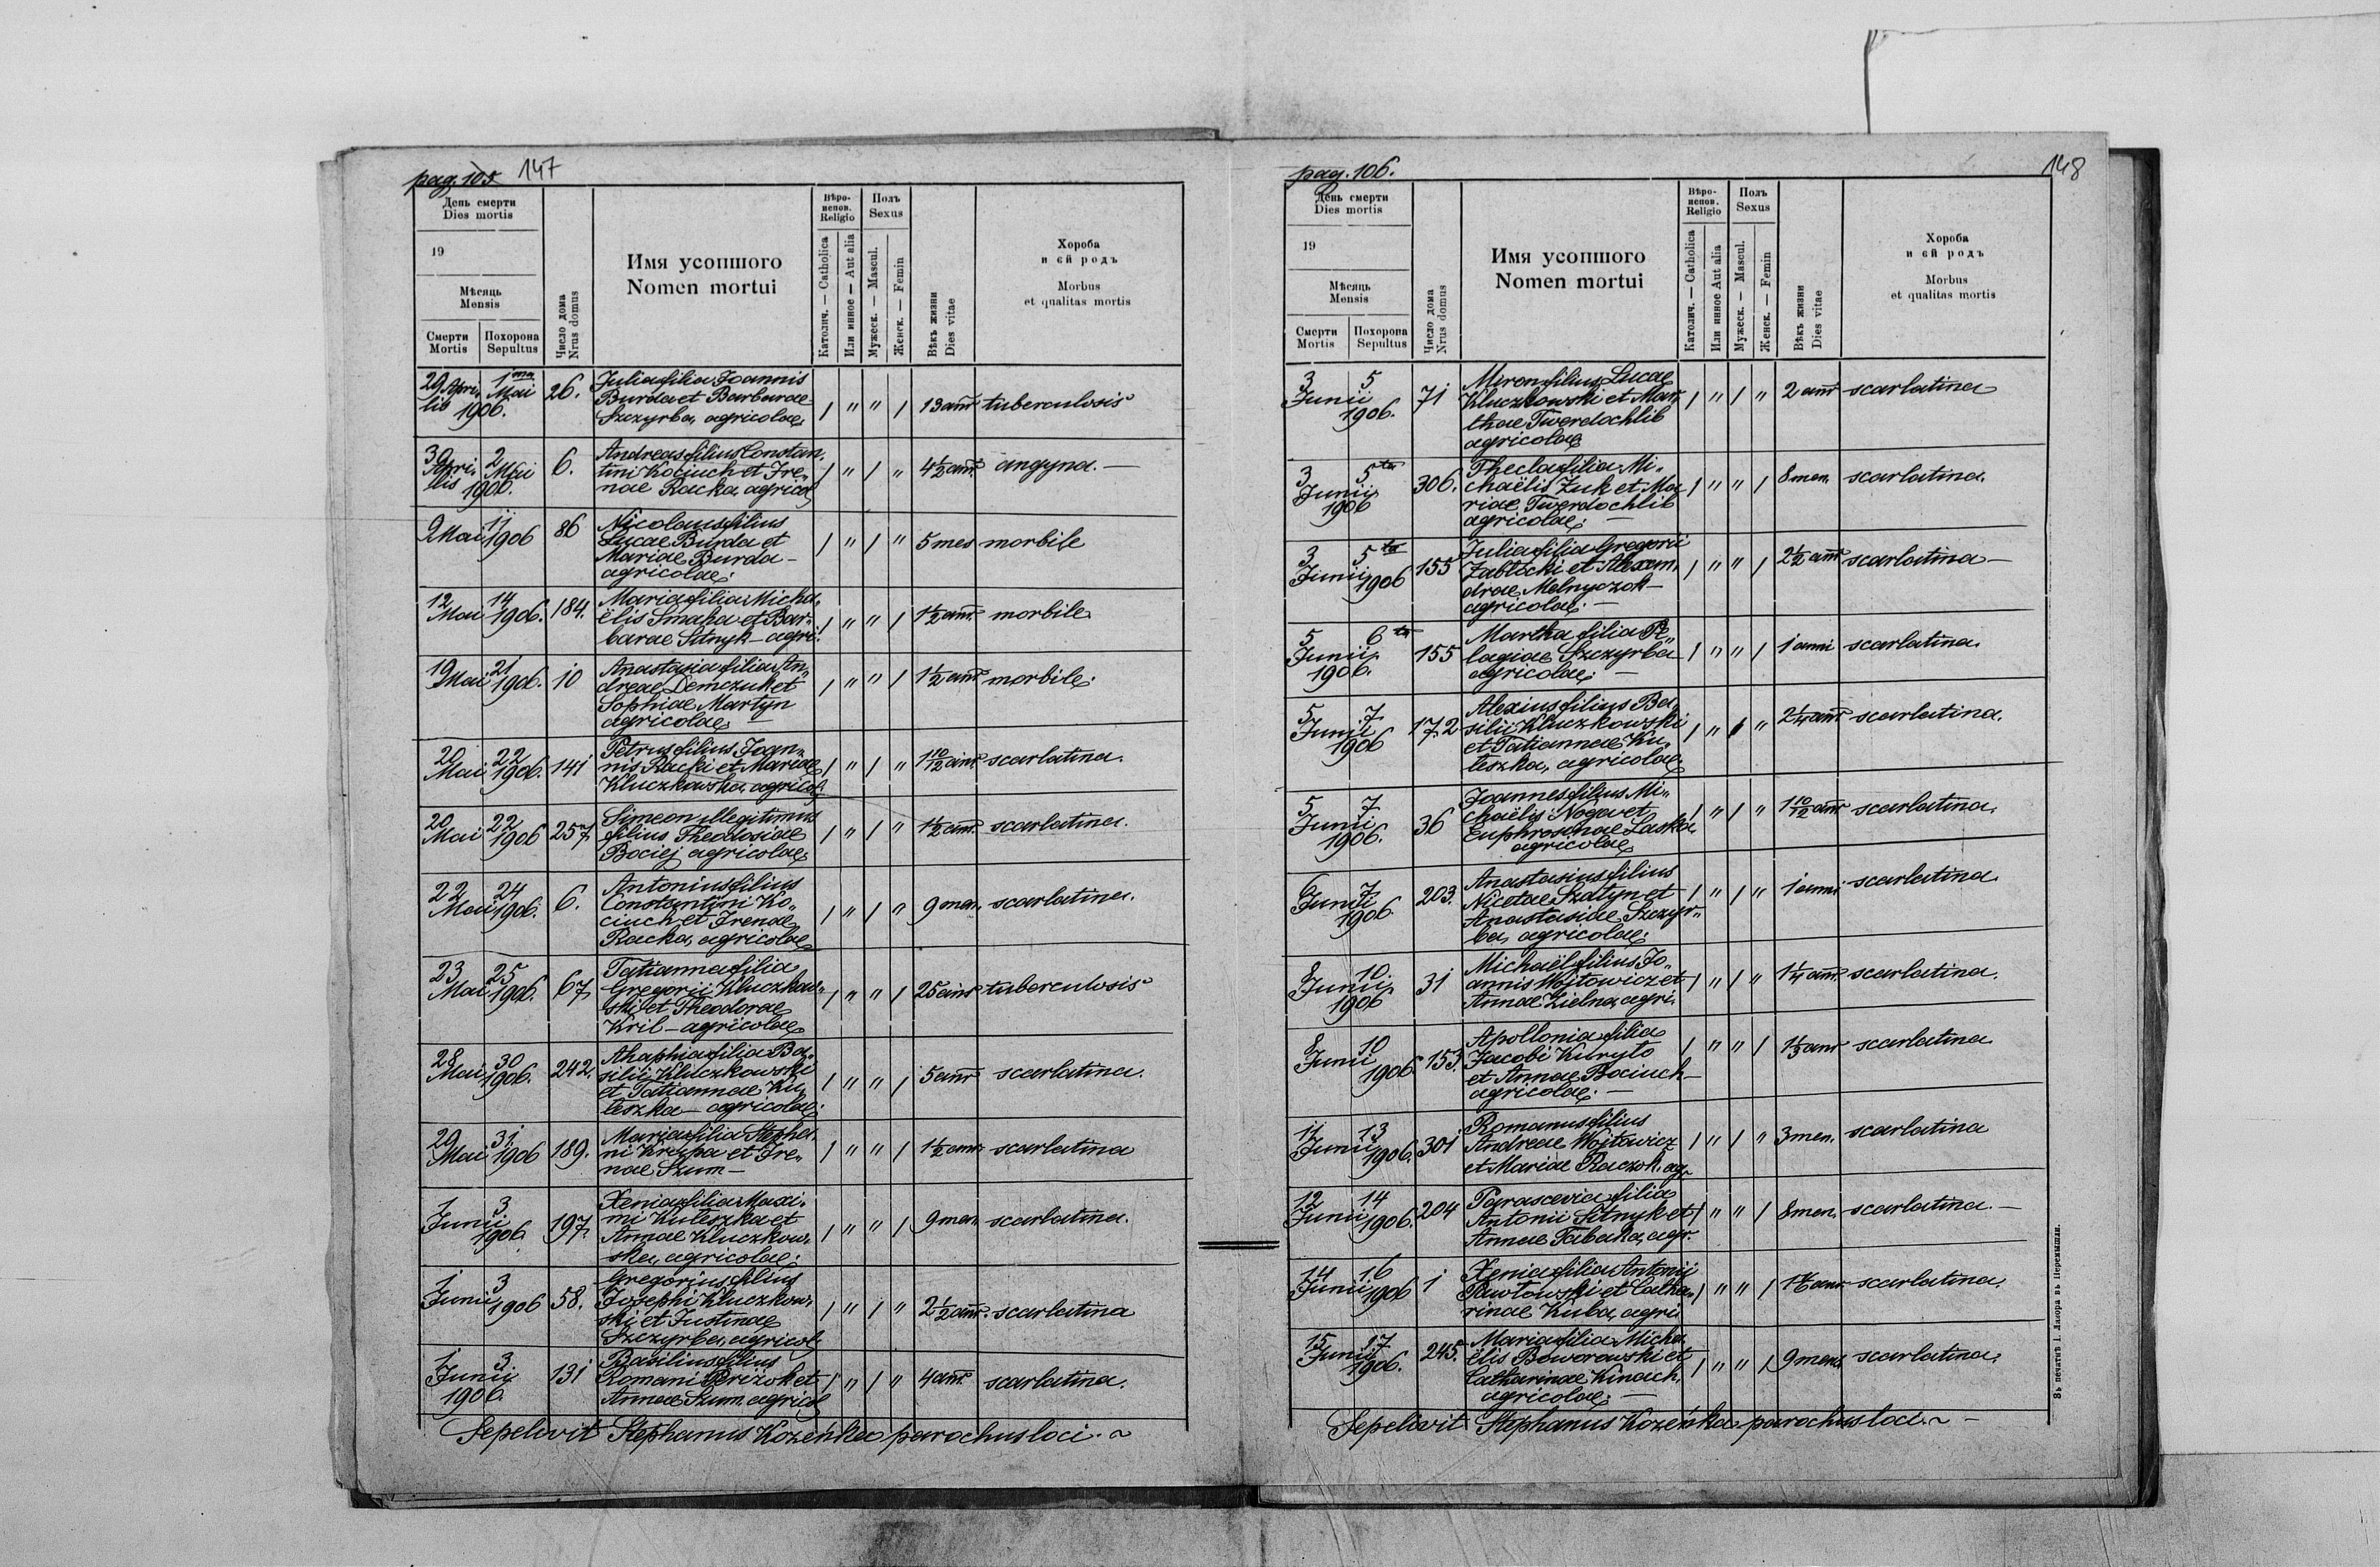 pag. 105 147
День смерти
Dies mortis
19
Мѣсяць
Mensis
Смерти
Mortis
Похорона
Sepultus
Число дома
Nrus domus
Имя усопшого
Nomen mortui
Вѣро-
испов.
Religio
Католич. — Catholica
Или инное — Aut alia
Полъ
Sexus
Мужеск. — Mascul.
Женск. — Femin
Вѣкъ жизни
Dies vitae
Хороба
и єй родъ
Morbus
et qualitas mortis
29 Apri- 1ma Mai 26. Julia filia Joannis
lis 1906. Burda et Barbarae
Szczyrba, agricolae / " " / 13 ann tuberculosis
30 Apri- 2 Mai 6. Andreas filius Constan-
lis 1906. tini Kociuch et Ire-
nae Racka, agricol / " / " 4 1/2 ann. angyna. —
9 Mai 11 1906 86 Nicolaus filius
Lucae Burda et / " / " 5 mes morbile
Mariae Burda —
agricolae;
12 Mai 14 1906. 184. Maria filia Micha-
ëlis Smaha et Bar- / " " / 1 1/2 ann. morbile
barae Sitnyk — agri.
19 Mai 21 1906. 10 Anastasia filia An-
dreae Demczuk et / " " / 1 1/2 ann morbile;
Sophiae Martyn
agricolae; —
20 Mai 22 1906. 141 Petrus filius Joan-
nis Racki et Mariae / " / " 1 10/12 ann. scarlatina.
Kluczkowska, agricol.
20 Mai 22 1906 257. Simeon illegitimus
filius Theodosiae / " / " 1 1/2 ann. scarlatina.
Bociej agricolae;
22 Mai 24 1906. 6. Antonius filius
Constantini Ko-
ciuch et Irenae / " / " 9 men. scarlatina.
Racka, agricolae
23 Mai 25 1906. 67 Tatianna filia
Gregorii Kluczkow- / " " / 25 ann tuberculosis
ski et Theodorae
Kril — agricolae
28 Mai 30 1906. 242. Ahaphia filia Ba-
silii Kluczkowski
et Tatiannae Ku- / " " / 5 ann scarlatina.
leszka — agricolae;
29 Mai 31. 1906 189. Maria filia Stepha-
ni Krezpa et Ire- / " " / 1 1/2 ann scarlatina
nae Szum —
1 Junii 3 1906. 197. Xenia filia Maxi-
mi Kuleszka et
Annae Kluczkow- / " " / 9 men scarlatina.
ska, agricolae;
1 Junii 3 1906 58. Gregorius filius
Josephi Kluczkow- / " / " 2 1/2 ann. scarlatina
ski et Justinae
Szczyrba, agricol.
1 Junii 3. 1906 131 Basilius filius
Romani Perizok et / " / " 4 ann. scarlatina.
Annae Szum. agricol
Sepelivit Stephanus Kozeńko parochus loci. ~
pag. 106. 148
День смерти
Dies mortis
19
Мѣсяць
Mensis
Смерти
Mortis
Похорона
Sepultus
Число дома
Nrus domus
Имя усопшого
Nomen mortui
Вѣро-
испов.
Religio
Католич. — Catholica
Или инное Aut alia
Полъ
Sexus
Мужеск. — Mascul.
Женск. — Femin
Вѣкъ жизни
Dies vitae
Хороба
и єй родъ
Morbus
et qualitas mortis
3 Junii 5 1906. 71 Miron filius Lucae
Kluczkowski et Mar- / " / " 2 ann scarlatina
thae Twerdochlib
agricolae
3 Junii 5ta 1906 306. Thecla filia Mi-
chaëlis Zuk et Ma- / " " / 8 men. scarlatina.
riae Twerdochlib
agricolae; —
3 Junii 5ta 1906 155 Julia filia Gregorii
Zablocki et Alexan- / " " / 2 1/2 ann scarlatina —
drae Melnyczok —
agricolae; —
5 Junii 6ta 1906. 155 Martha filia Pe-
lagiae Szczyrba / " " / 1 anni scarlatina.
agricolae; —
5 Junii 7 1906 172 Alexius filius Ba-
silii Kluczkowski / " / " 2 1/4 ann scarlatina.
et Tatiannae Ku-
leszka, agricolae;
5 Junii 7 1906. 36 Joannes filius Mi-
chaëlis Noga et / " / " 1 10/12 ann scarlatina.
Euphrosinae Laska,
agricolae
6 Junii 7 1906. 203. Anastasius filius
Nicetae Szatyn et / " / " 1 anni scarlatina.
Anastasiae Szczyr-
ba, agricolae;
8 Junii 10. 1906 31 Michaël filius Jo-
annis Wojtowicz et / " / " 1 1/4 ann. scarlatina.
Annae Zielna, agri.
8 Junii 10 1906 153. Apollonia filia
Jacobi Kuryło / " " / 1 1/3 ann scarlatina
et Annae Bociuch —
agricolae; —
11 Junii 13 1906. 301 Romanus filius
Andreae Wojtowicz / " / " 3 men. scarlatina
et Mariae Raczok. ag.
12 Junii 14 1906. 204 Parascevia filia
Antonii Sitnyk et / " " / 8 men. scarlatina. —
Annae Tabaka, agr.
14 Junii 16 1906 1 Xenia filia Antonii
Pawłowski et Catha- / " " / ann scarlatina
rinae Kuba, agri
15 Junii 17 1906. 245. Maria filia Micha-
ëlis Boworowski et / " " / 9 mens scarlatina.
Catharinae Kinach,
agricolae; —
Sepelivit Stephanus Kozeńko parochus loci. ~ —
Въ печатнѣ І. Лазора въ Перемышли.